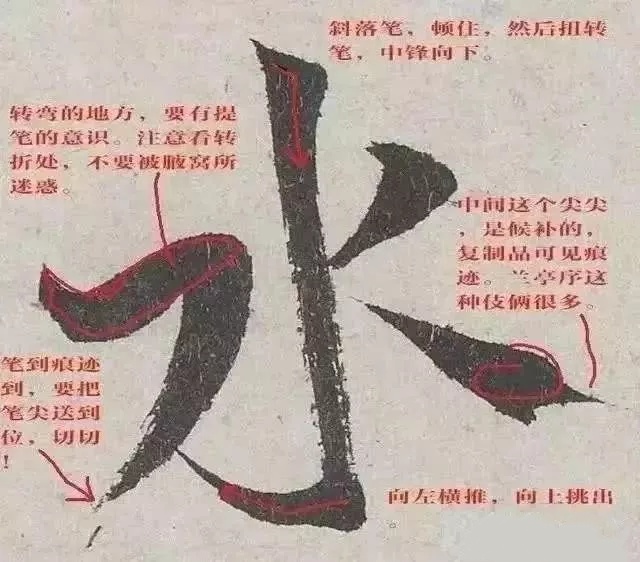 斜落笔，顿住，然后扭转
笔，中锋向下。
转弯的地方，要有提
笔的意识。注意看转
折处，不要被腋窝所
迷惑。
中间这个尖尖
，是候补的，
复制品可见痕
迹。兰亭序这
种伎俩很多。
笔到痕迹
到，要把
笔尖送到
位，切切
！
向左横推，向上挑出
。
水